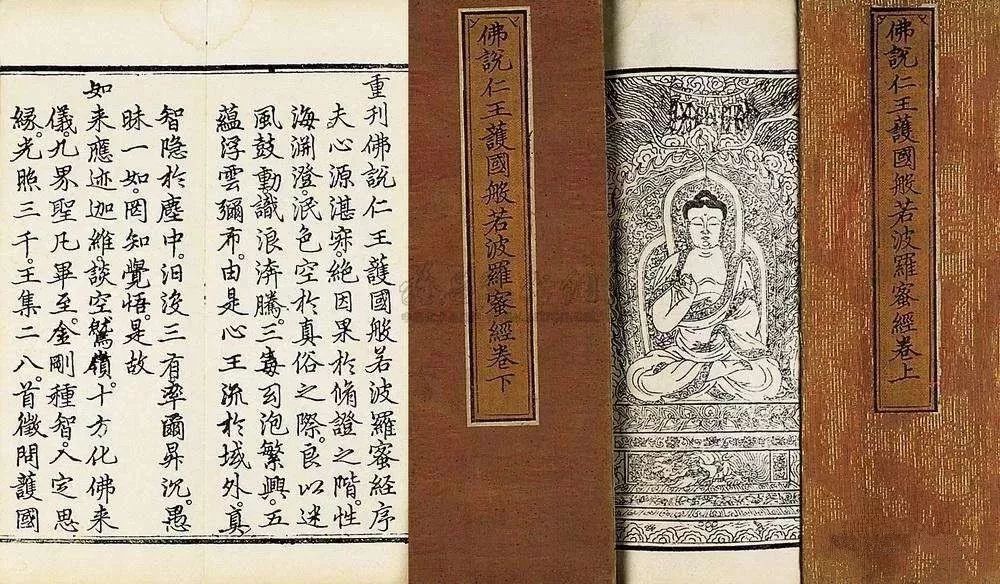 佛說仁王護國般若波羅蜜經卷上
佛說仁王護國般若波羅蜜經卷下
重刊佛說仁王護國般若波羅蜜經序
夫心源湛寂。絕因果於脩證之階。性
海淵澄。泯色空於真俗之際。良以迷
風鼓動。識浪渀騰。三毒幻泡繁興。五
蘊浮雲彌布。由是心王流於域外。真
智隐於塵中。汨没三有。率爾昇沉。愚
昧一如。罔知覺悟。是故
如来應迹迦維。談空鷲嶺。十方化佛。来
儀。九界聖凡畢至。金剛種智。入定思
緣。光照三千。王集二八。首徵問護國